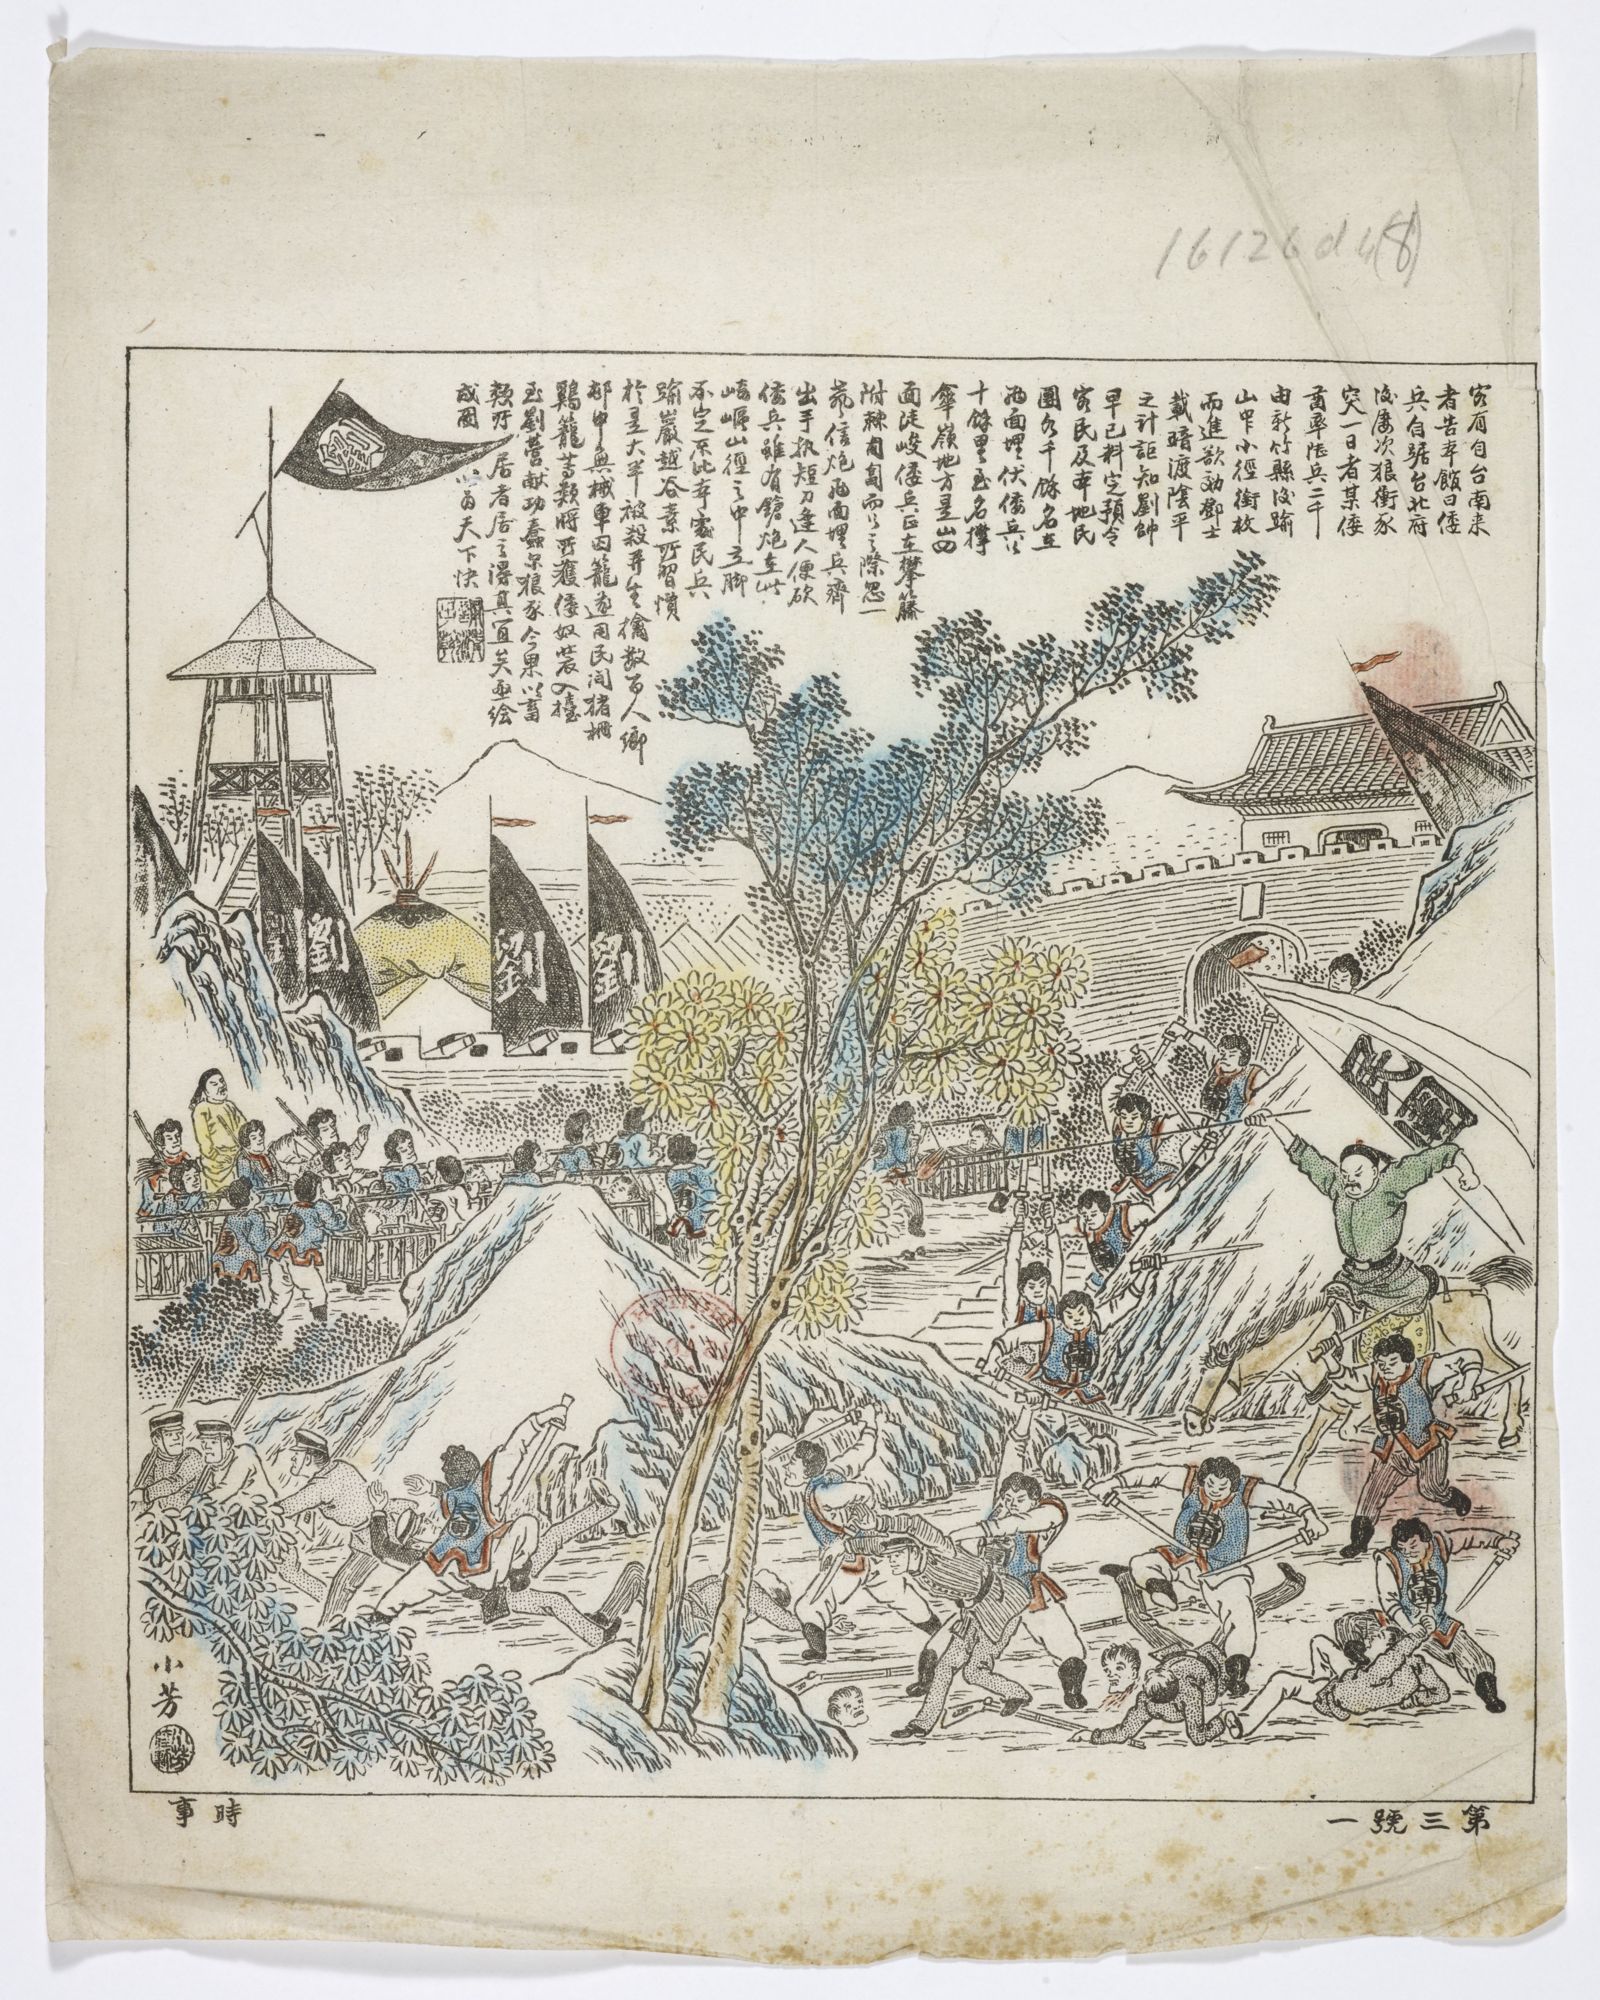 16126 d 4(8)
客有自台南来
者告本館曰倭
兵自踞台北府
後屢次狼衝豕
突一日者某倭
酋率陸兵二千
由新竹縣後踰
山中小徑銜枚
而進欲効鄧士
載暗渡陰平
之計詎知劉帥
早已料定預令
客民及本地民
團各千餘名在
四面埋伏倭兵行
十餘里至名撑
傘嶺地方是山四
面陡峻倭兵正在攀籐
附棘自高而下之際忽一
聲信炮四面埋兵齊
出手执短刀逢人便砍
倭兵雖有鎗炮在此
崎嶇山徑之中立脚
不定不比本處民兵
踰巖越谷素所習慣
於是大半被殺并生擒数百人鄉
邨中無械車囚籠遂用民间猪柵
鷄籠等類將所獲倭奴裝入擡
至劉營献功蠢尔狼豕今果以畜
類所居者居之得其宜矣亟绘
成圖以為天下快
劉
劉
劉
民團
勇
勇
民團
小芳
時事
第三號一